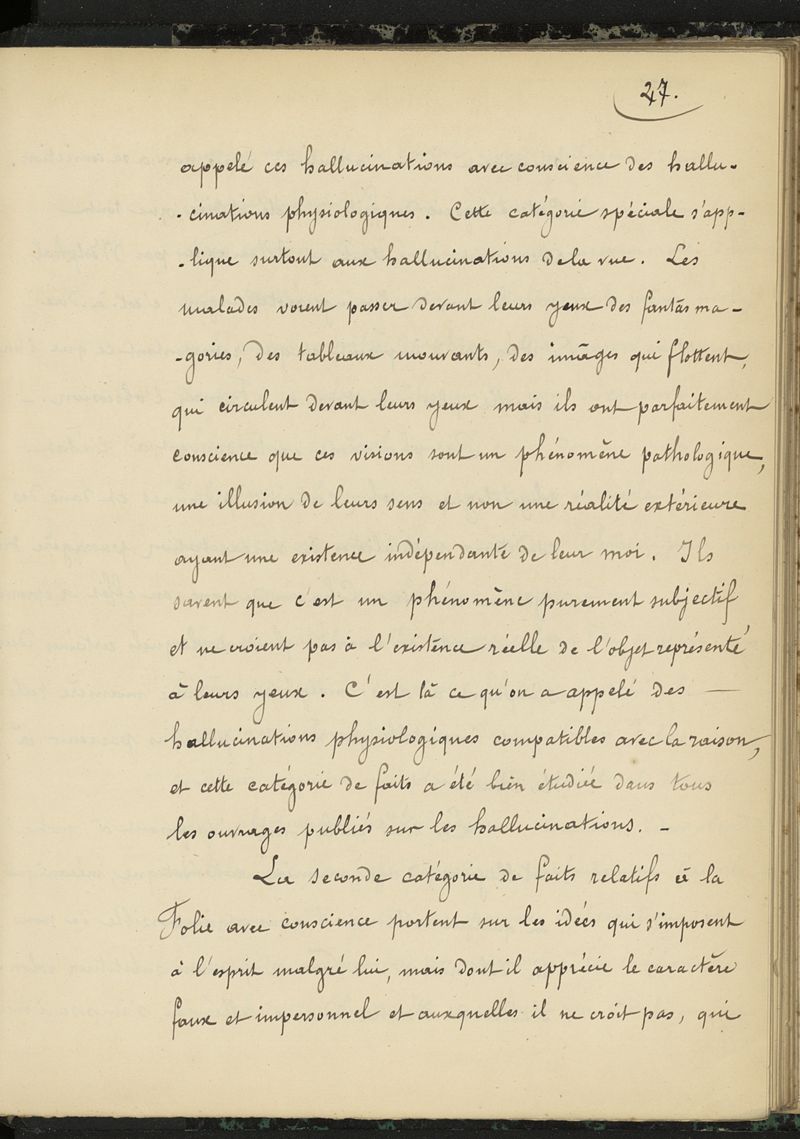 27.
appelé ces hallucinations avec conscience des hallu-
-cinations physiologiques. Cette catégorie spéciale s'app-
-lique surtout aux hallucinations de la vue. Les
malades voient passer devant leurs yeux des fantasma-
-gories, des tableaux mouvants, des images qui flottent,
qui circulent devant leurs yeux mais ils ont parfaitement
conscience que ces visions sont un phénomène pathologique,
une illusion de leurs sens et non une réalité extérieure
ayant une existence indépendante de leur moi. Ils
savent que c'est un phénomène purement subjectif,
et ne croient pas à l'existence réelle de l'objet représenté
à leurs yeux. C'est là ce qu'on a appelé des —
hallucinations physiologiques compatibles avec la raison,
et cette catégorie de faits a été bien étudiée dans tous
les ouvrages publiés sur les hallucinations. -
La seconde catégorie de faits relatifs à la
Folie avec conscience portent sur les idées qui s'imposent
à l'esprit malgré lui, mais dont il apprécie le caractère
faux et impersonnel et auxquelles il ne croit pas, qui